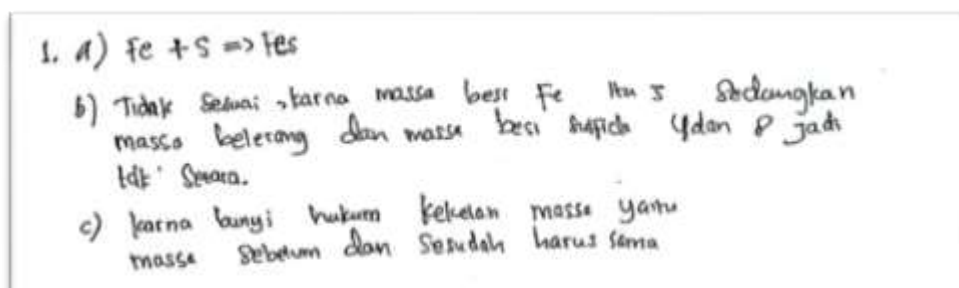 1. a) Fe + S => Fes
b) Tidak sesuai, karna massa besi Fe itu 5 sedangkan
massa belerang dan massa besi sulfida 4 dan 8 jadi
tdk setara.
c) karna bunyi hukum kekelan massa yaitu
massa sebelum dan sesudah harus sama